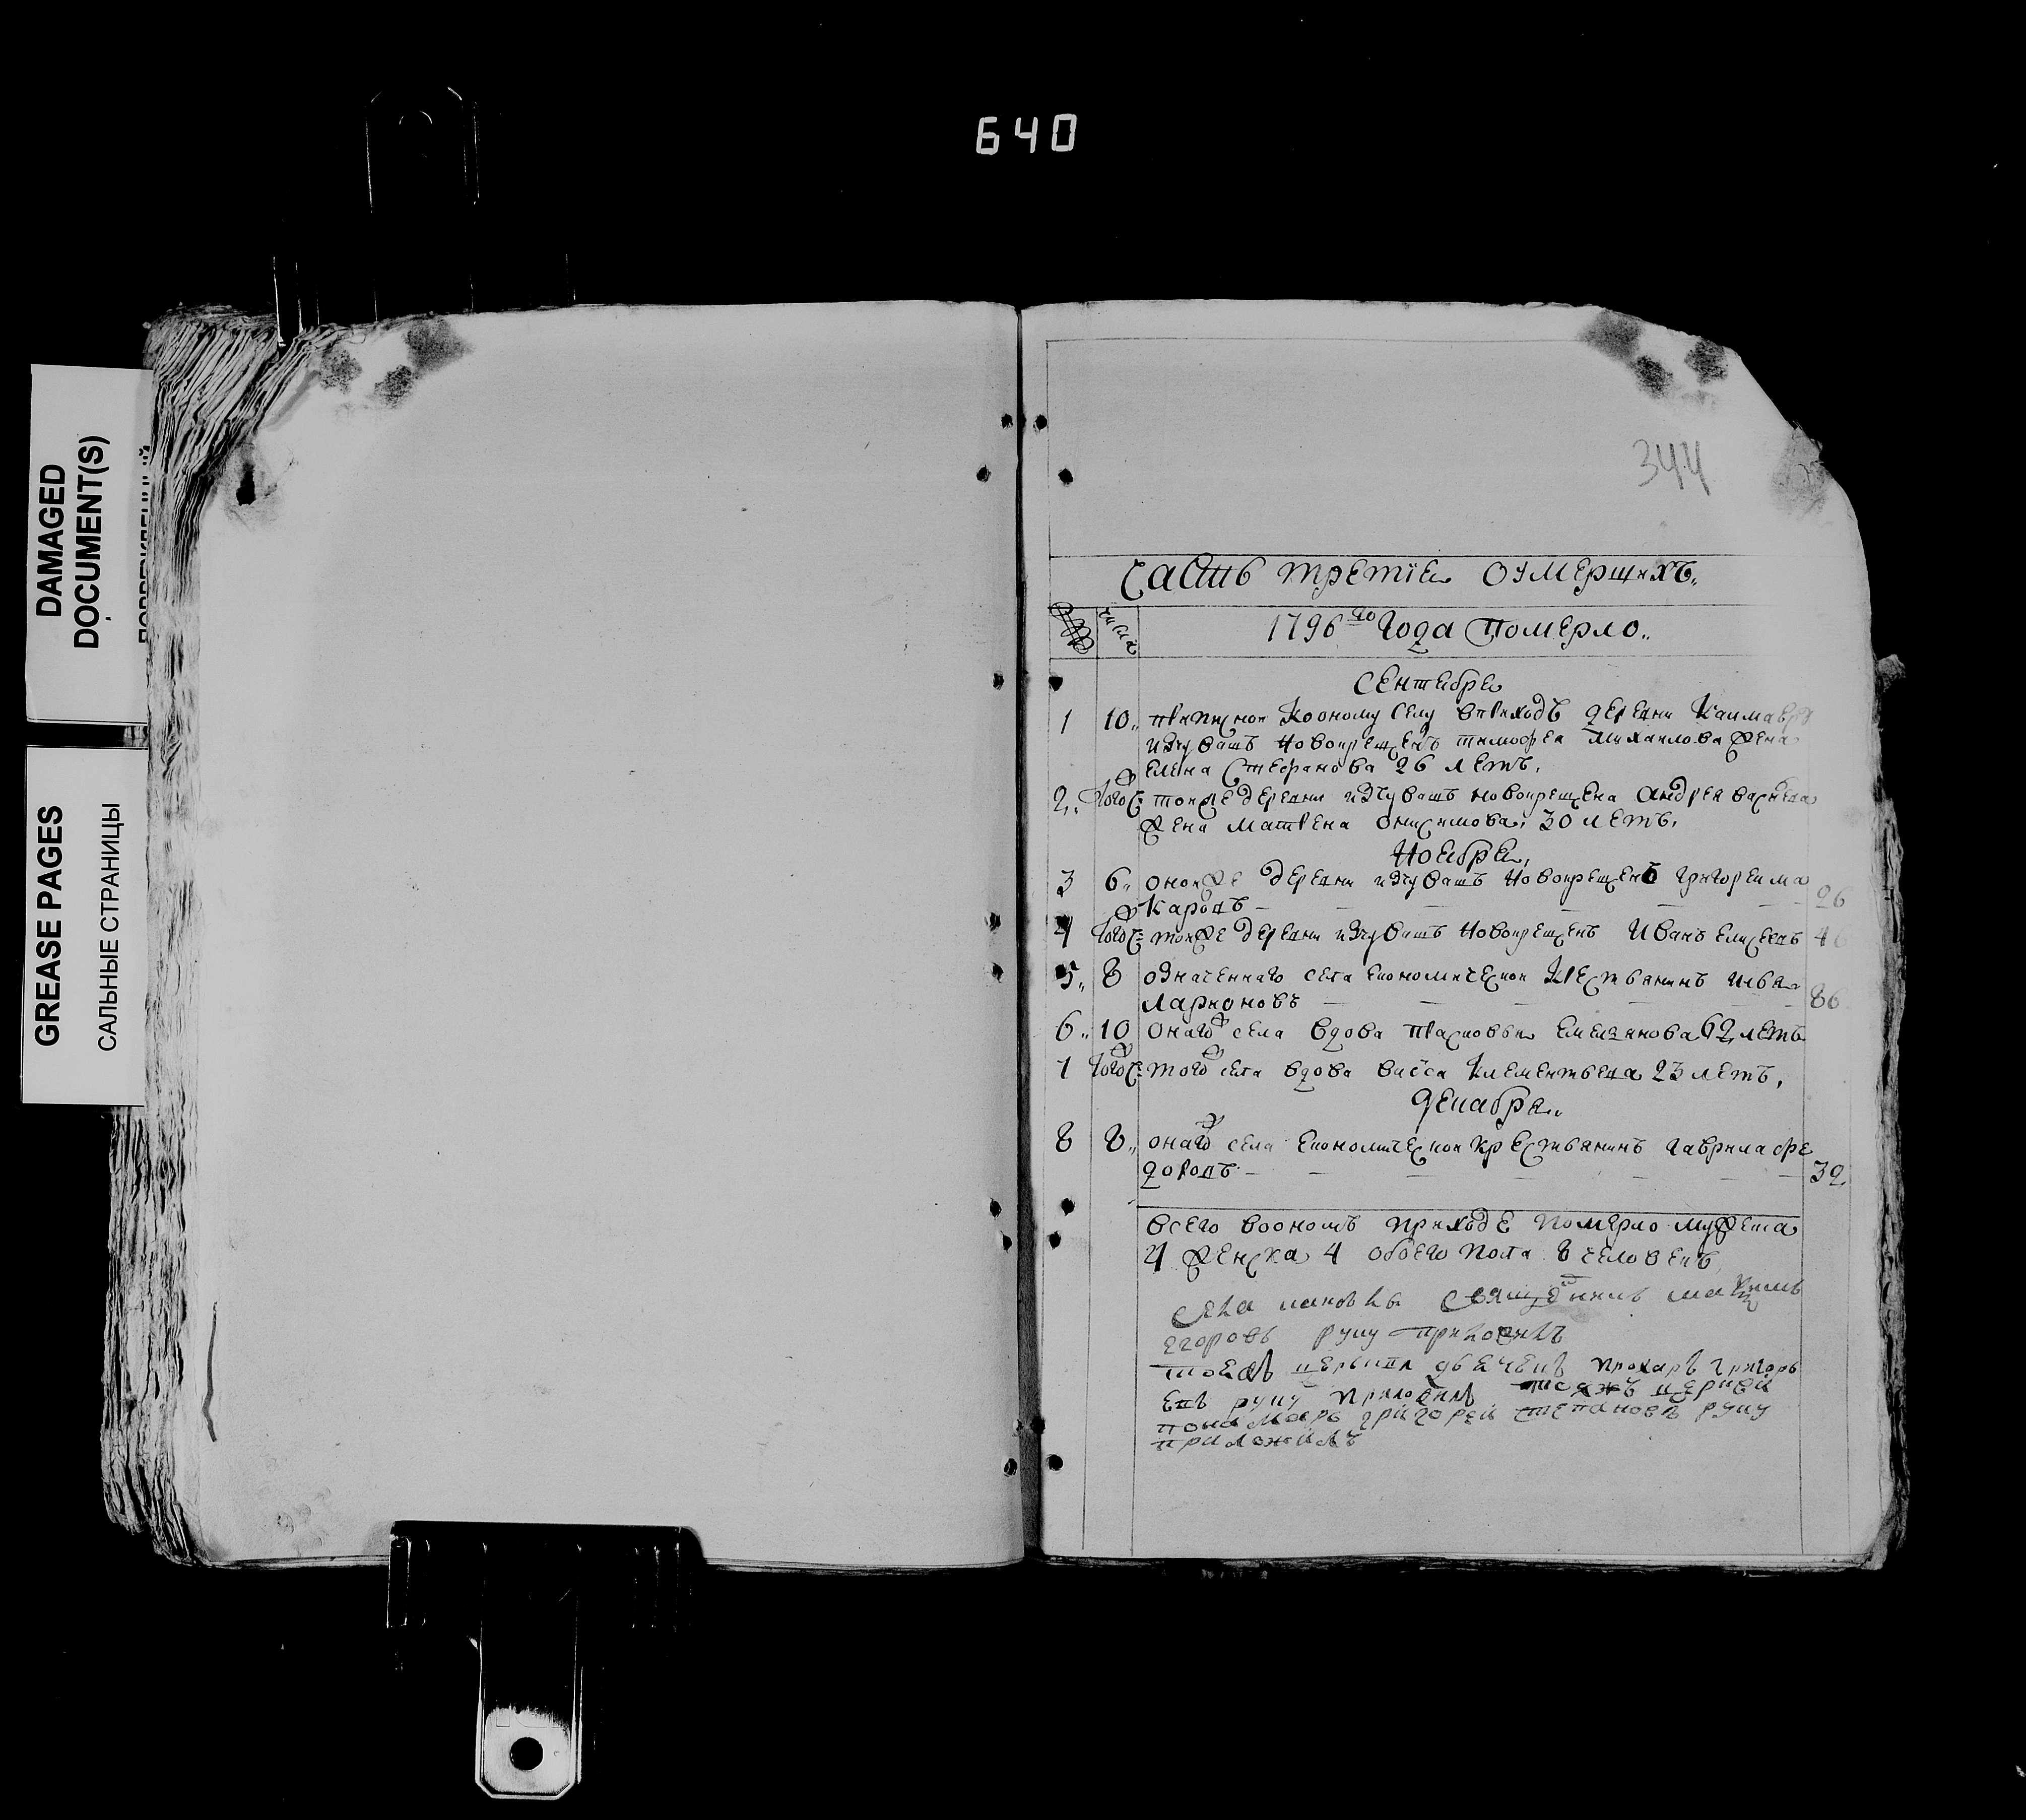 640
DAMAGED
DOCUMENT(S)
GREASE PAGES
САЛЬНЫЕ СТРАНИЦЫ
344
Часть третіея оумершихъ
числа
1796го Года Померло
Сентебре
1 10 приписной коеному селу вприходъ деревни
изчувашъ новокрещенъ тимофеа михаилова жена
Елена Стефанова 26 летъ
2 тогож тойже деревни изчувашъ новокрещена андрея
жена матрена онисимова 30 летъ
Ноебре
3 6 онойже деревни изчувашъ новокрещенъ григореи ма
каровъ 26
4 тогож тойже деревни изчувашъ новокрещенъ Иванъ елисеевъ
5 8 означеннаго села економическои крестьянинъ
ларионовъ 86
6 10 онагож села вдова прасковья емельянова 62 летъ
7 тогож тогож села вдова васса клементьева 23 летъ
Декабре
8 8 онагож села економическои крестьянинъ гаврила фе
доровъ 32
всего воономъ приходе померло мужеска
4 женска 4 обоего пола 8 человекъ
села священникъ максимъ
егоровъ руку приложилъ
тоежъ церькви дьячекъ прохаръ григорь
евъ руку приложилъ тоежъ церкви
понамарь григорей степановъ руку
приложилъ